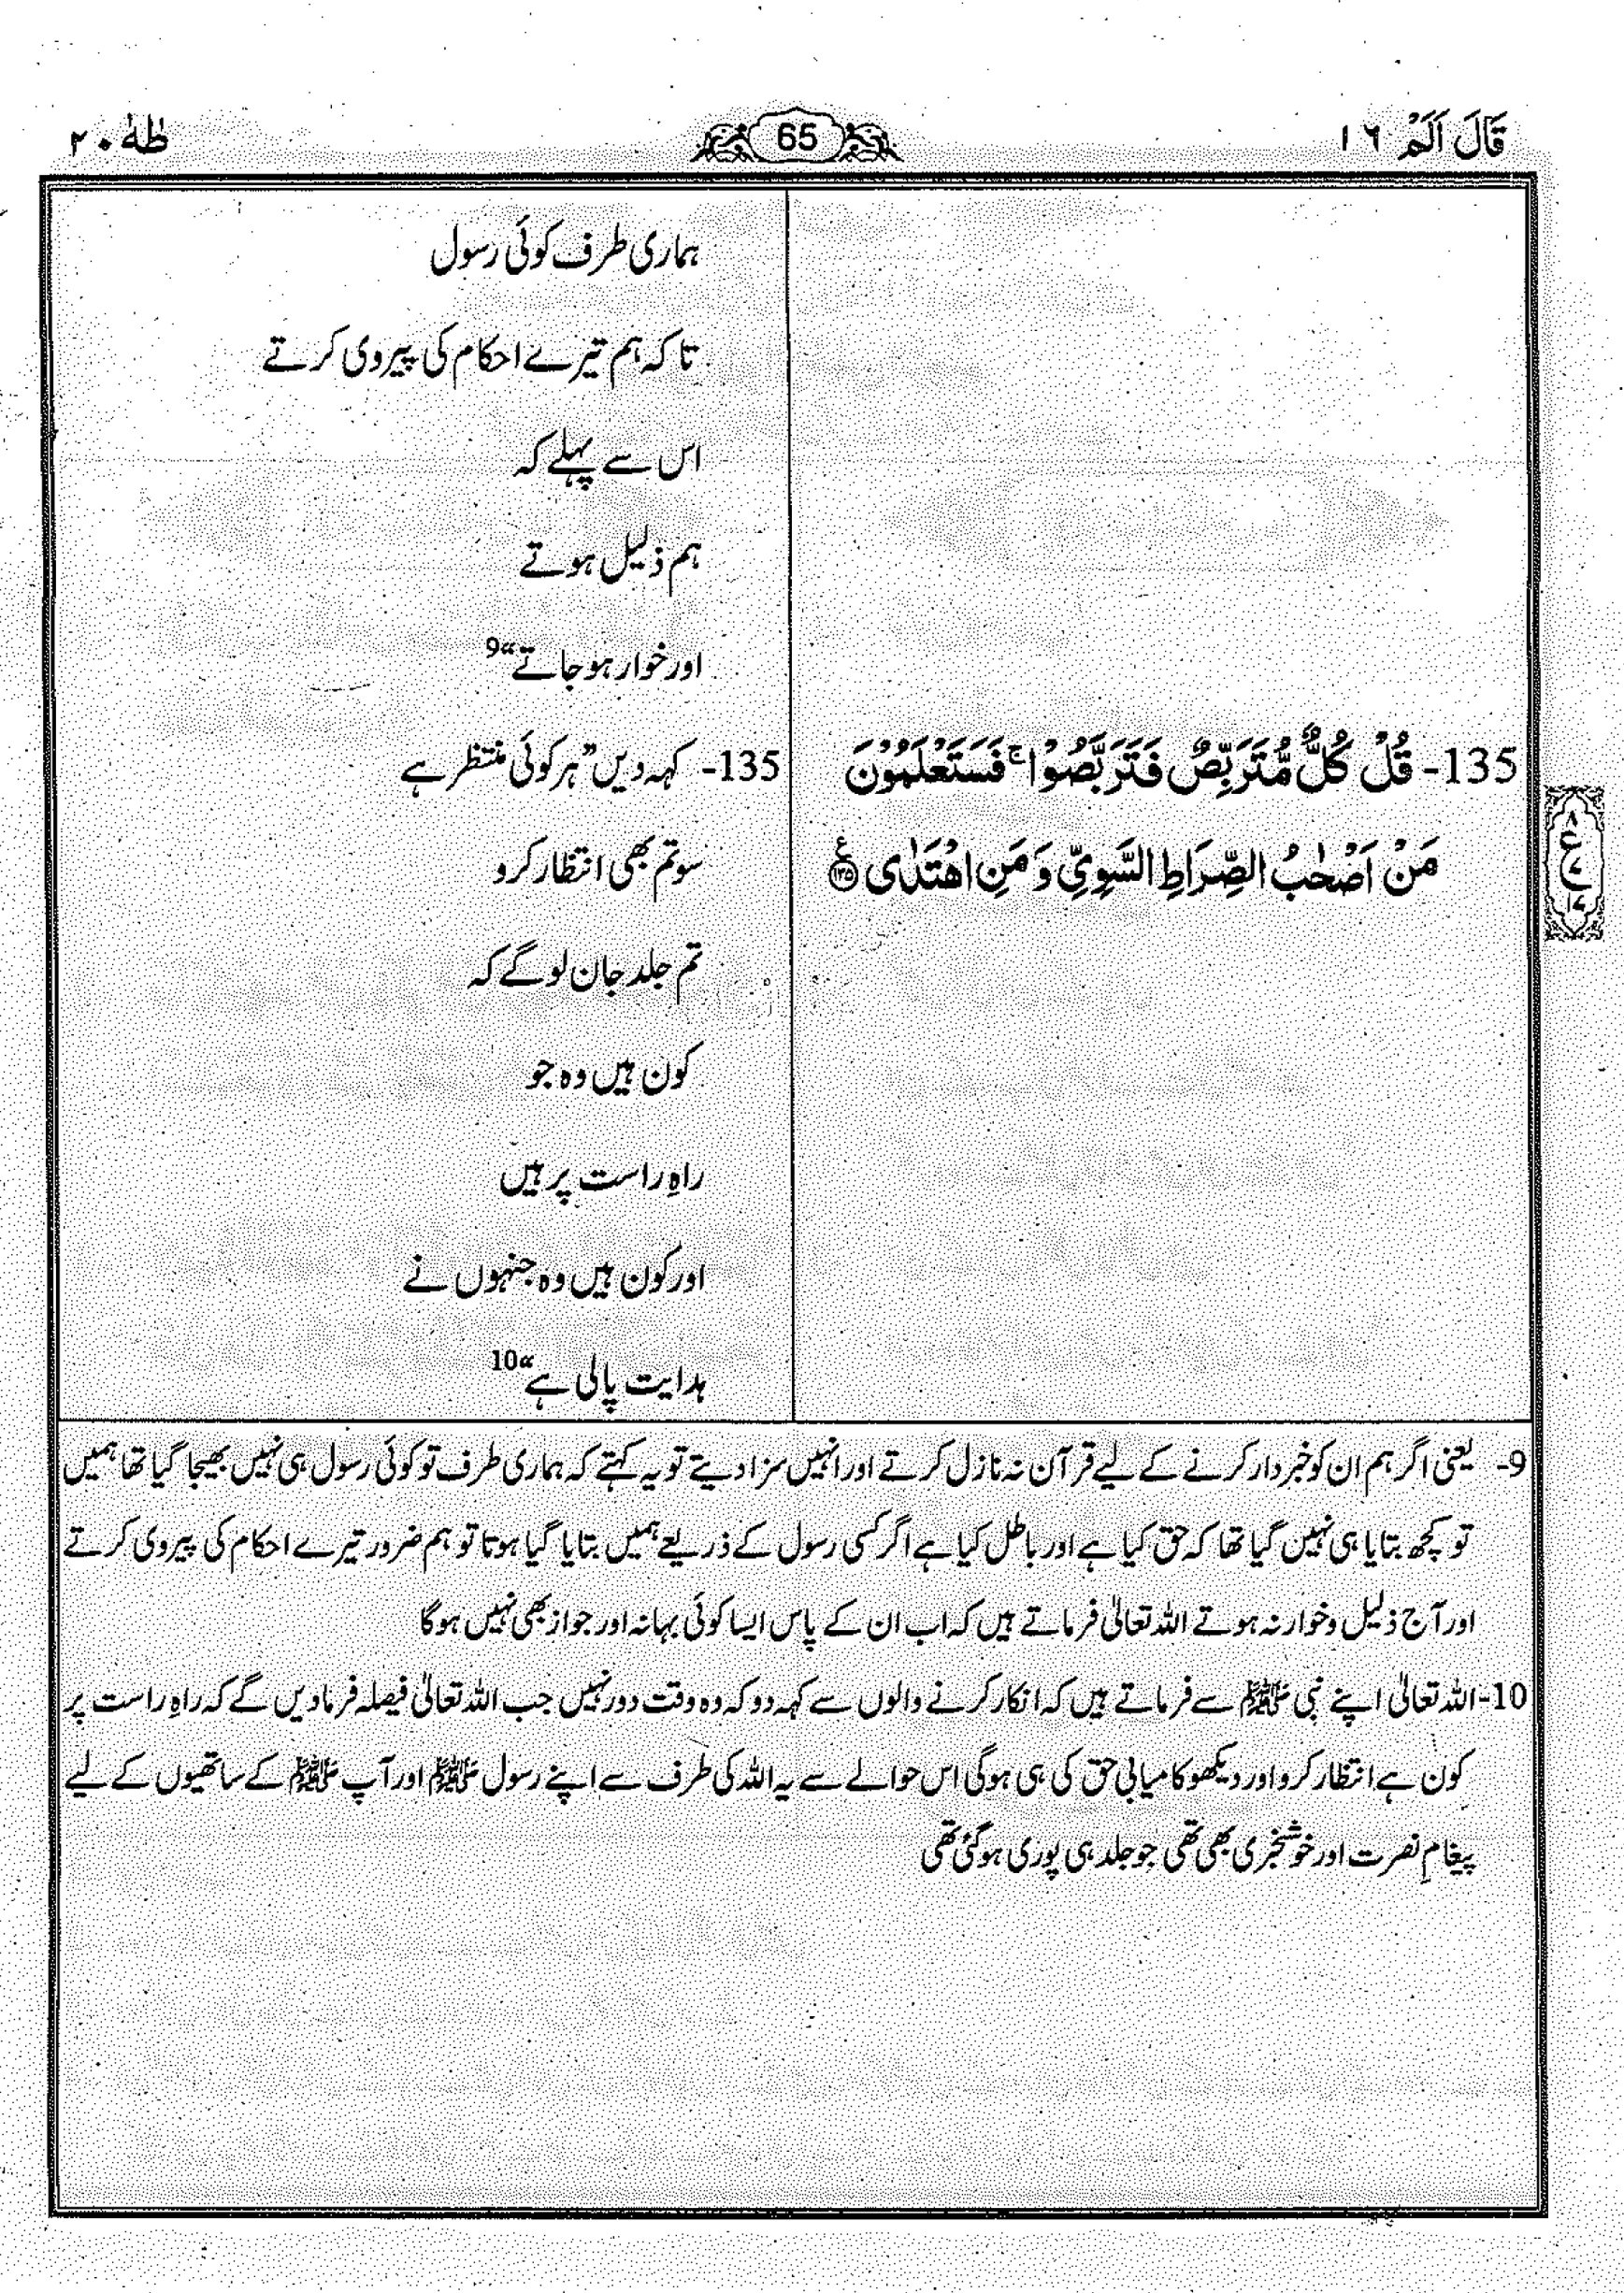 قَالَ اَلَمْ ۱٦
65
طٰهٰ ۲۰
ہماری طرف کوئی رسول
تا کہ ہم تیرے احکام کی پیروی کرتے
اس سے پہلے کہ
ہم ذلیل ہوتے
اور خوار ہو جاتے“9
135- قُلْ كُلٌّ مُّتَرَبِّصٌ فَتَرَبَّصُوْا ۚ فَسَتَعْلَمُوْنَ
مَنْ اَصْحٰبُ الصِّرَاطِ السَّوِيِّ وَ مَنِ اهْتَدٰى ﴿۱۳۵﴾ ع
۸
ع
۱۷
135- کہہ دیں ”ہر کوئی منتظر ہے
سو تم بھی انتظار کرو
تم جلد جان لو گے کہ
کون ہیں وہ جو
راہِ راست پر ہیں
اور کون ہیں وہ جنہوں نے
ہدایت پالی ہے“10
9- یعنی اگر ہم ان کو خبردار کرنے کے لیے قرآن نہ نازل کرتے اور انہیں سزا دیتے تو یہ کہتے کہ ہماری طرف تو کوئی رسول ہی نہیں بھیجا گیا تھا ہمیں
تو کچھ بتایا ہی نہیں گیا تھا کہ حق کیا ہے اور باطل کیا ہے اگر کسی رسول کے ذریعے ہمیں بتایا گیا ہوتا تو ہم ضرور تیرے احکام کی پیروی کرتے
اور آج ذلیل و خوار نہ ہوتے اللہ تعالیٰ فرماتے ہیں کہ اب ان کے پاس ایسا کوئی بہانہ اور جواز بھی نہیں ہوگا
10- اللہ تعالیٰ اپنے نبی ﷺ سے فرماتے ہیں کہ انکار کرنے والوں سے کہہ دو کہ وہ وقت دور نہیں جب اللہ تعالیٰ فیصلہ فرما دیں گے کہ راہِ راست پر
کون ہے انتظار کرو اور دیکھو کامیابی حق کی ہی ہوگی اس حوالے سے یہ اللہ کی طرف سے اپنے رسول ﷺ اور آپ ﷺ کے ساتھیوں کے لیے
پیغامِ نصرت اور خوشخبری بھی تھی جو جلد ہی پوری ہوگئی تھی